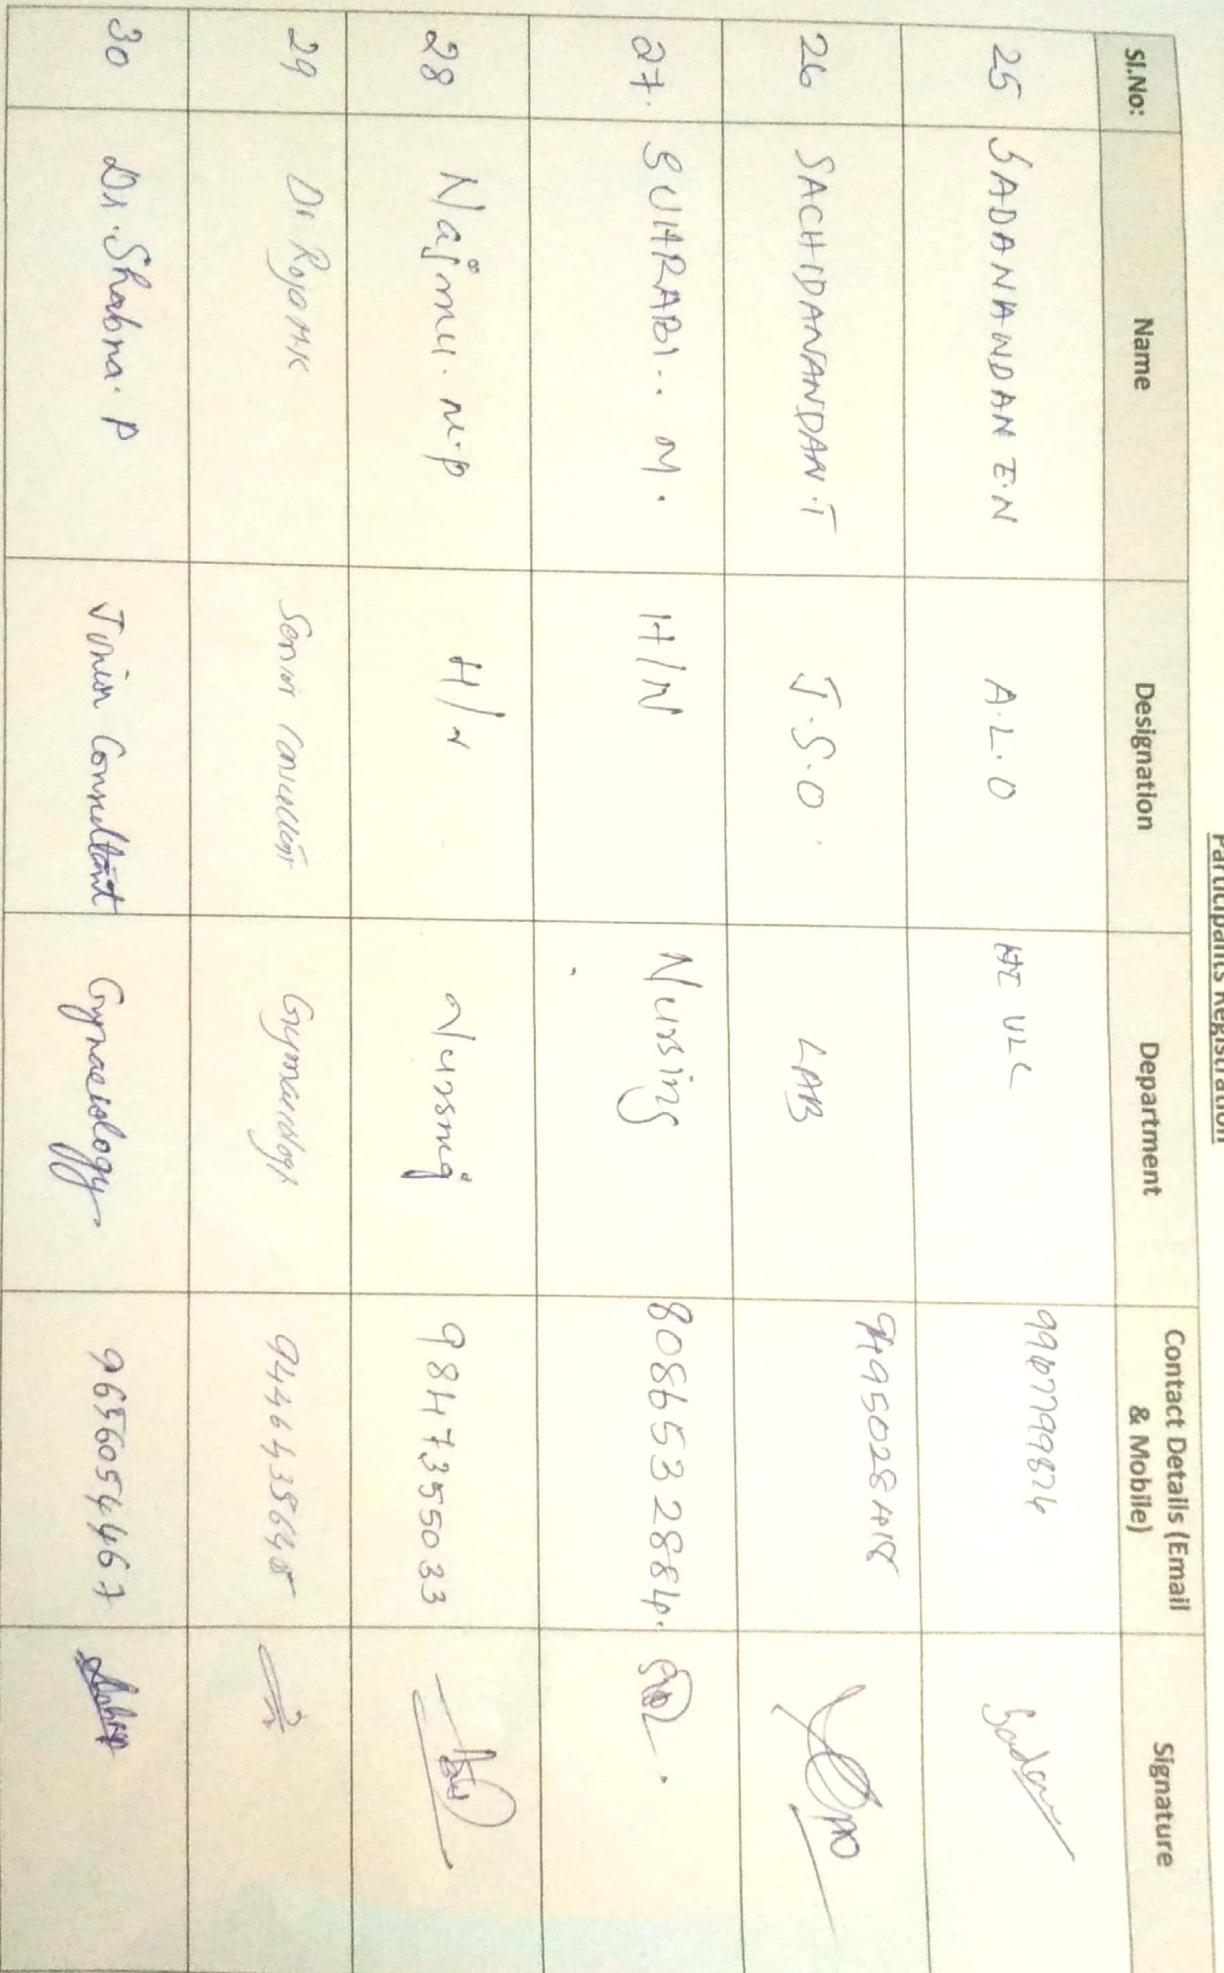 Participants Registration
Sl.No: Name Designation Department Contact Details (Email & Mobile) Signature
25 SADANANDAN E.N A.L.O
26 SACHIDANANDAN.T J.S.O. LAB 9495028418
27. SUHRABI.. M. H/N Nursing 8086532884.
28 Najmu. M.P H/N Nursing 9847355033
29 Dr Senior Consultant
30 Dr. Shabna. P Junior Consultant Gynaeiology 9656054467